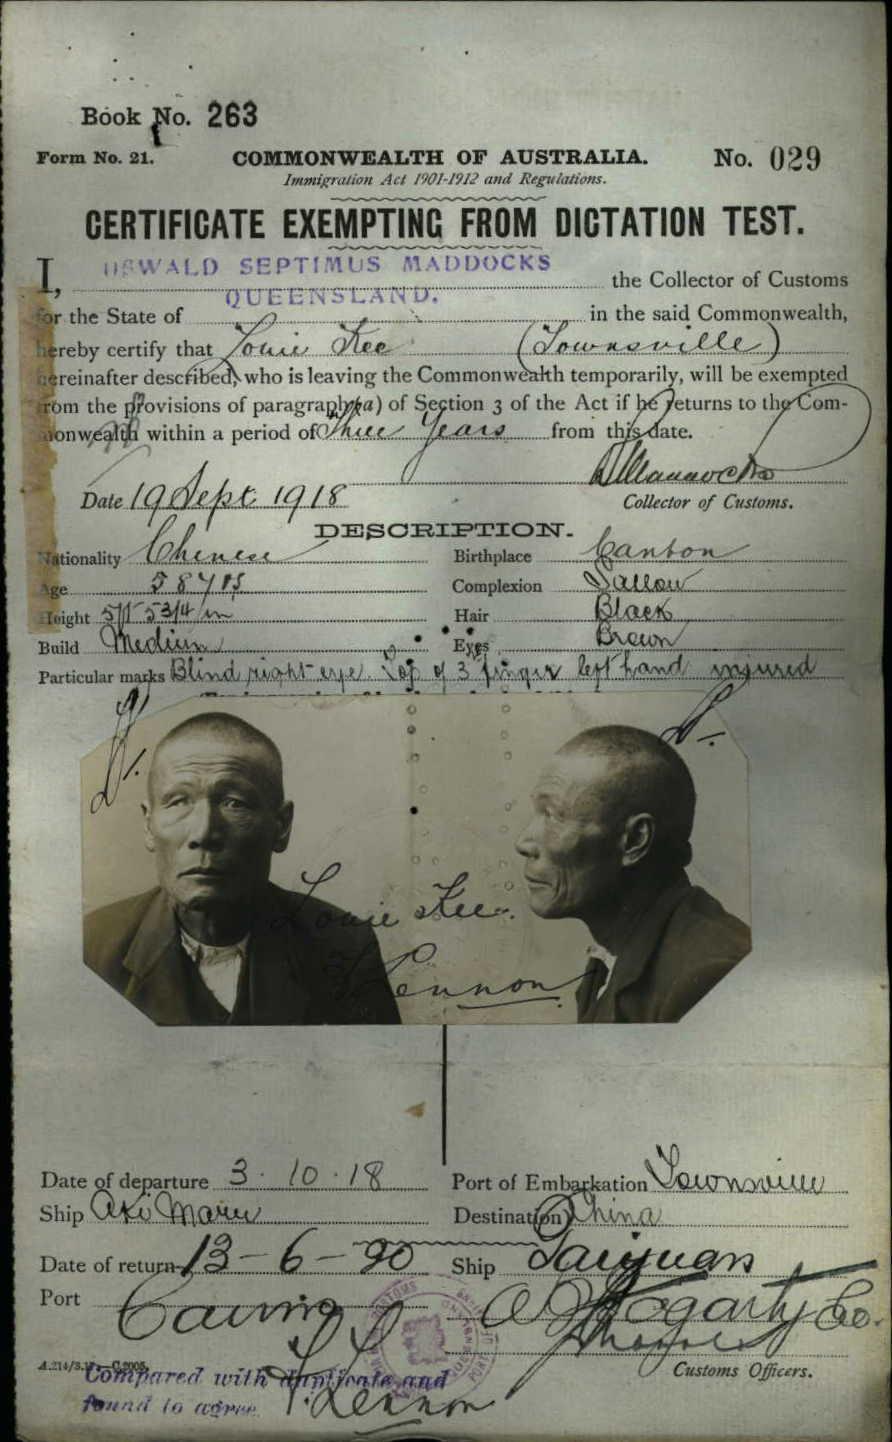 Book No. 263
Form No. 21. COMMONWEALTH OF AUSTRALIA. No. 029
Immigration Act 1901-1912 and Regulations.
CERTIFICATE EXEMPTING FROM DICTATION TEST.
I, OSWALD SEPTIMUS MADDOCKS the Collector of Customs
for the State of QUEENSLAND. in the said Commonwealth,
hereby certify that Louie Kee (Townsville)
hereinafter described, who is leaving the Commonwealth temporarily, will be exempted
from the provisions of paragraph (a) of Section 3 of the Act if he returns to the Com-
monwealth within a period of Three Years from this date.
Date 19 Sept 1918
Collector of Customs.
DESCRIPTION.
Nationality Chinese Birthplace Canton
Age 58 yrs Complexion Sallow
Height 5ft 5 3/4 in Hair Black
Build Medium Eyes Brown
Particular marks Blind right eye. Top of 3 finger left hand injured
Louie Kee.
Lennon
Date of departure 3.10.18 Port of Embarkation Townsville
Ship Aki Maru Destination China
Date of return 13-6-20 Ship Taiyuan
Port Cairns
Customs Officers.
Compared with duplicate and
found to agree.
Lennon